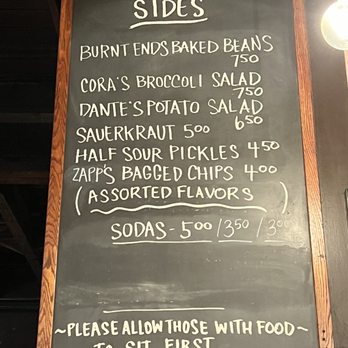 SIDES
BURNT ENDS BAKED BEANS
7.50
CORA'S BROCCOLI SALAD
7.50
DANTE'S POTATO SALAD
6.50
SAUERKRAUT 5.00
HALF SOUR PICKLES 4.50
ZAPP'S BAGGED CHIPS 4.00
(ASSORTED FLAVORS)
SODAS - 5.00 / 3.50 / 3.00
~PLEASE ALLOW THOSE WITH FOOD~
TO SIT FIRST